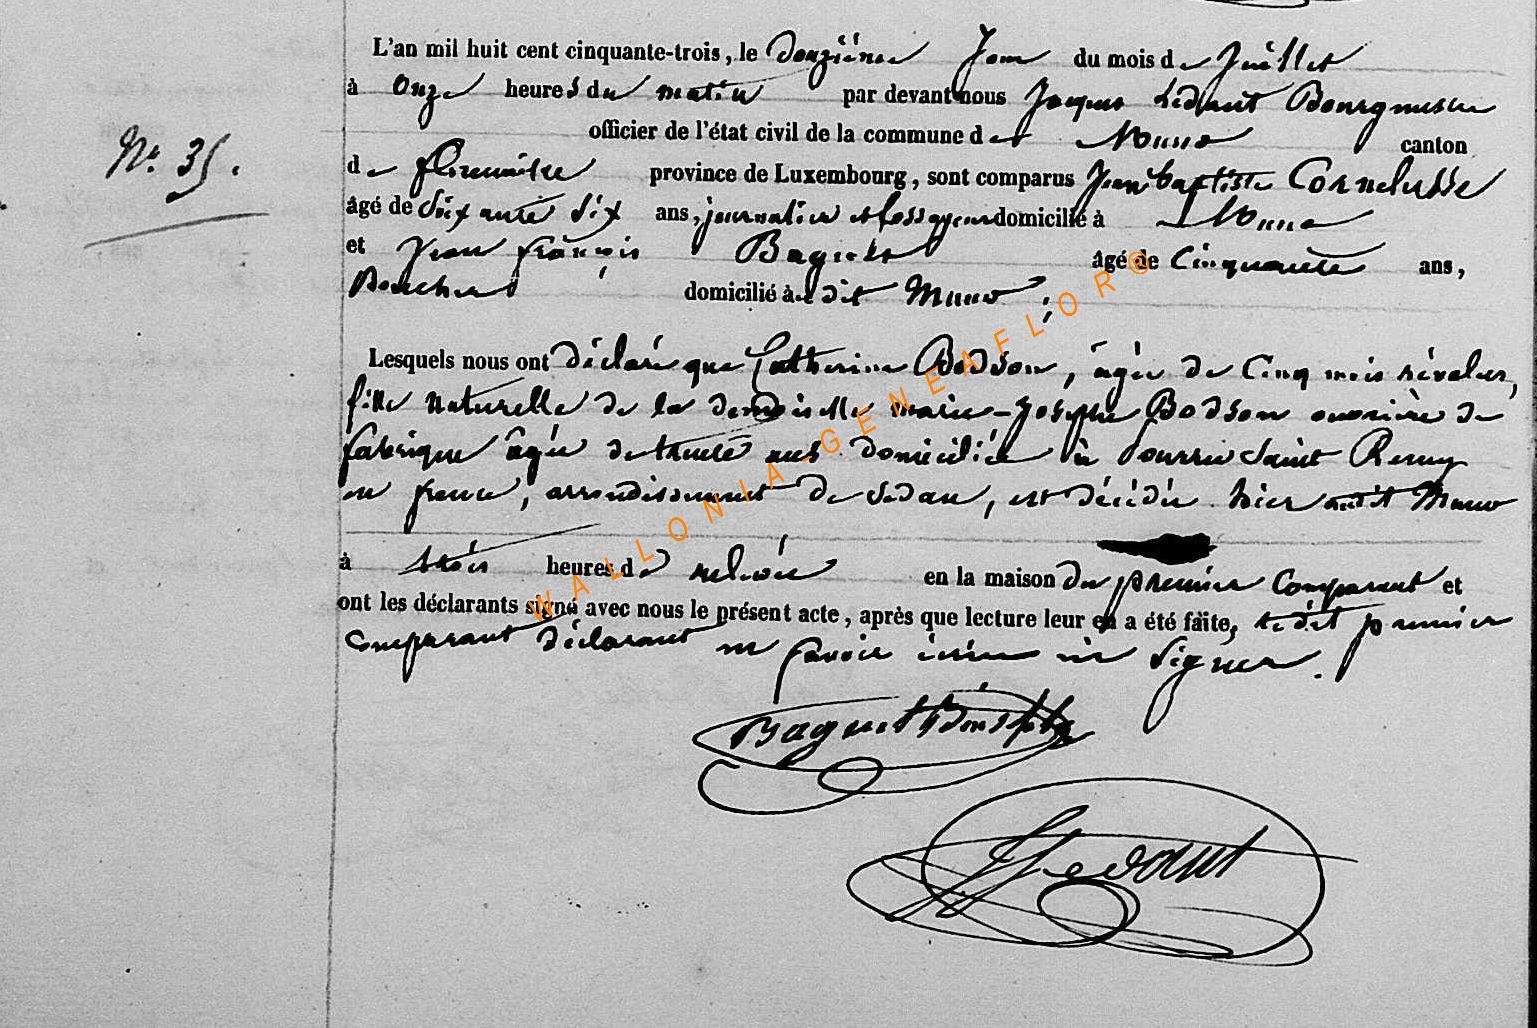 L'an mil huit cent cinquante-trois, le douzième Jour du mois de Juillet
à Onze heures du matin par devant nous Jacques Ledant Bourgmestre
officier de l'état civil de la commune de Muno canton
N° 35.
de florenville province de Luxembourg, sont comparus Jean baptiste Cornelusse
âgé de Soixante Six ans, journalier et fossoyeur domicilié à Muno
et Jean françois Baguet âgé de Cinquante ans,
domicilié à dit Muno ;
Lesquels nous ont déclaré que Catherine Bodson, âgée de Cinq mois révolus,
fille naturelle de la demoiselle marie-Josephe Bodson ouvrière de
fabrique âgée de trente ans domiciliée à pourru Saint Remy
en france, arrondissement de Sedan, est décédée hier audit Muno
à trois heures de relevée en la maison du premier Comparant et
ont les déclarants signé avec nous le présent acte, après que lecture leur en a été faite, ledit premier
comparant déclarant ne savoir écrire ni Signer.
Baguet
Ledant
WALLONIA-GENEAFLOR®